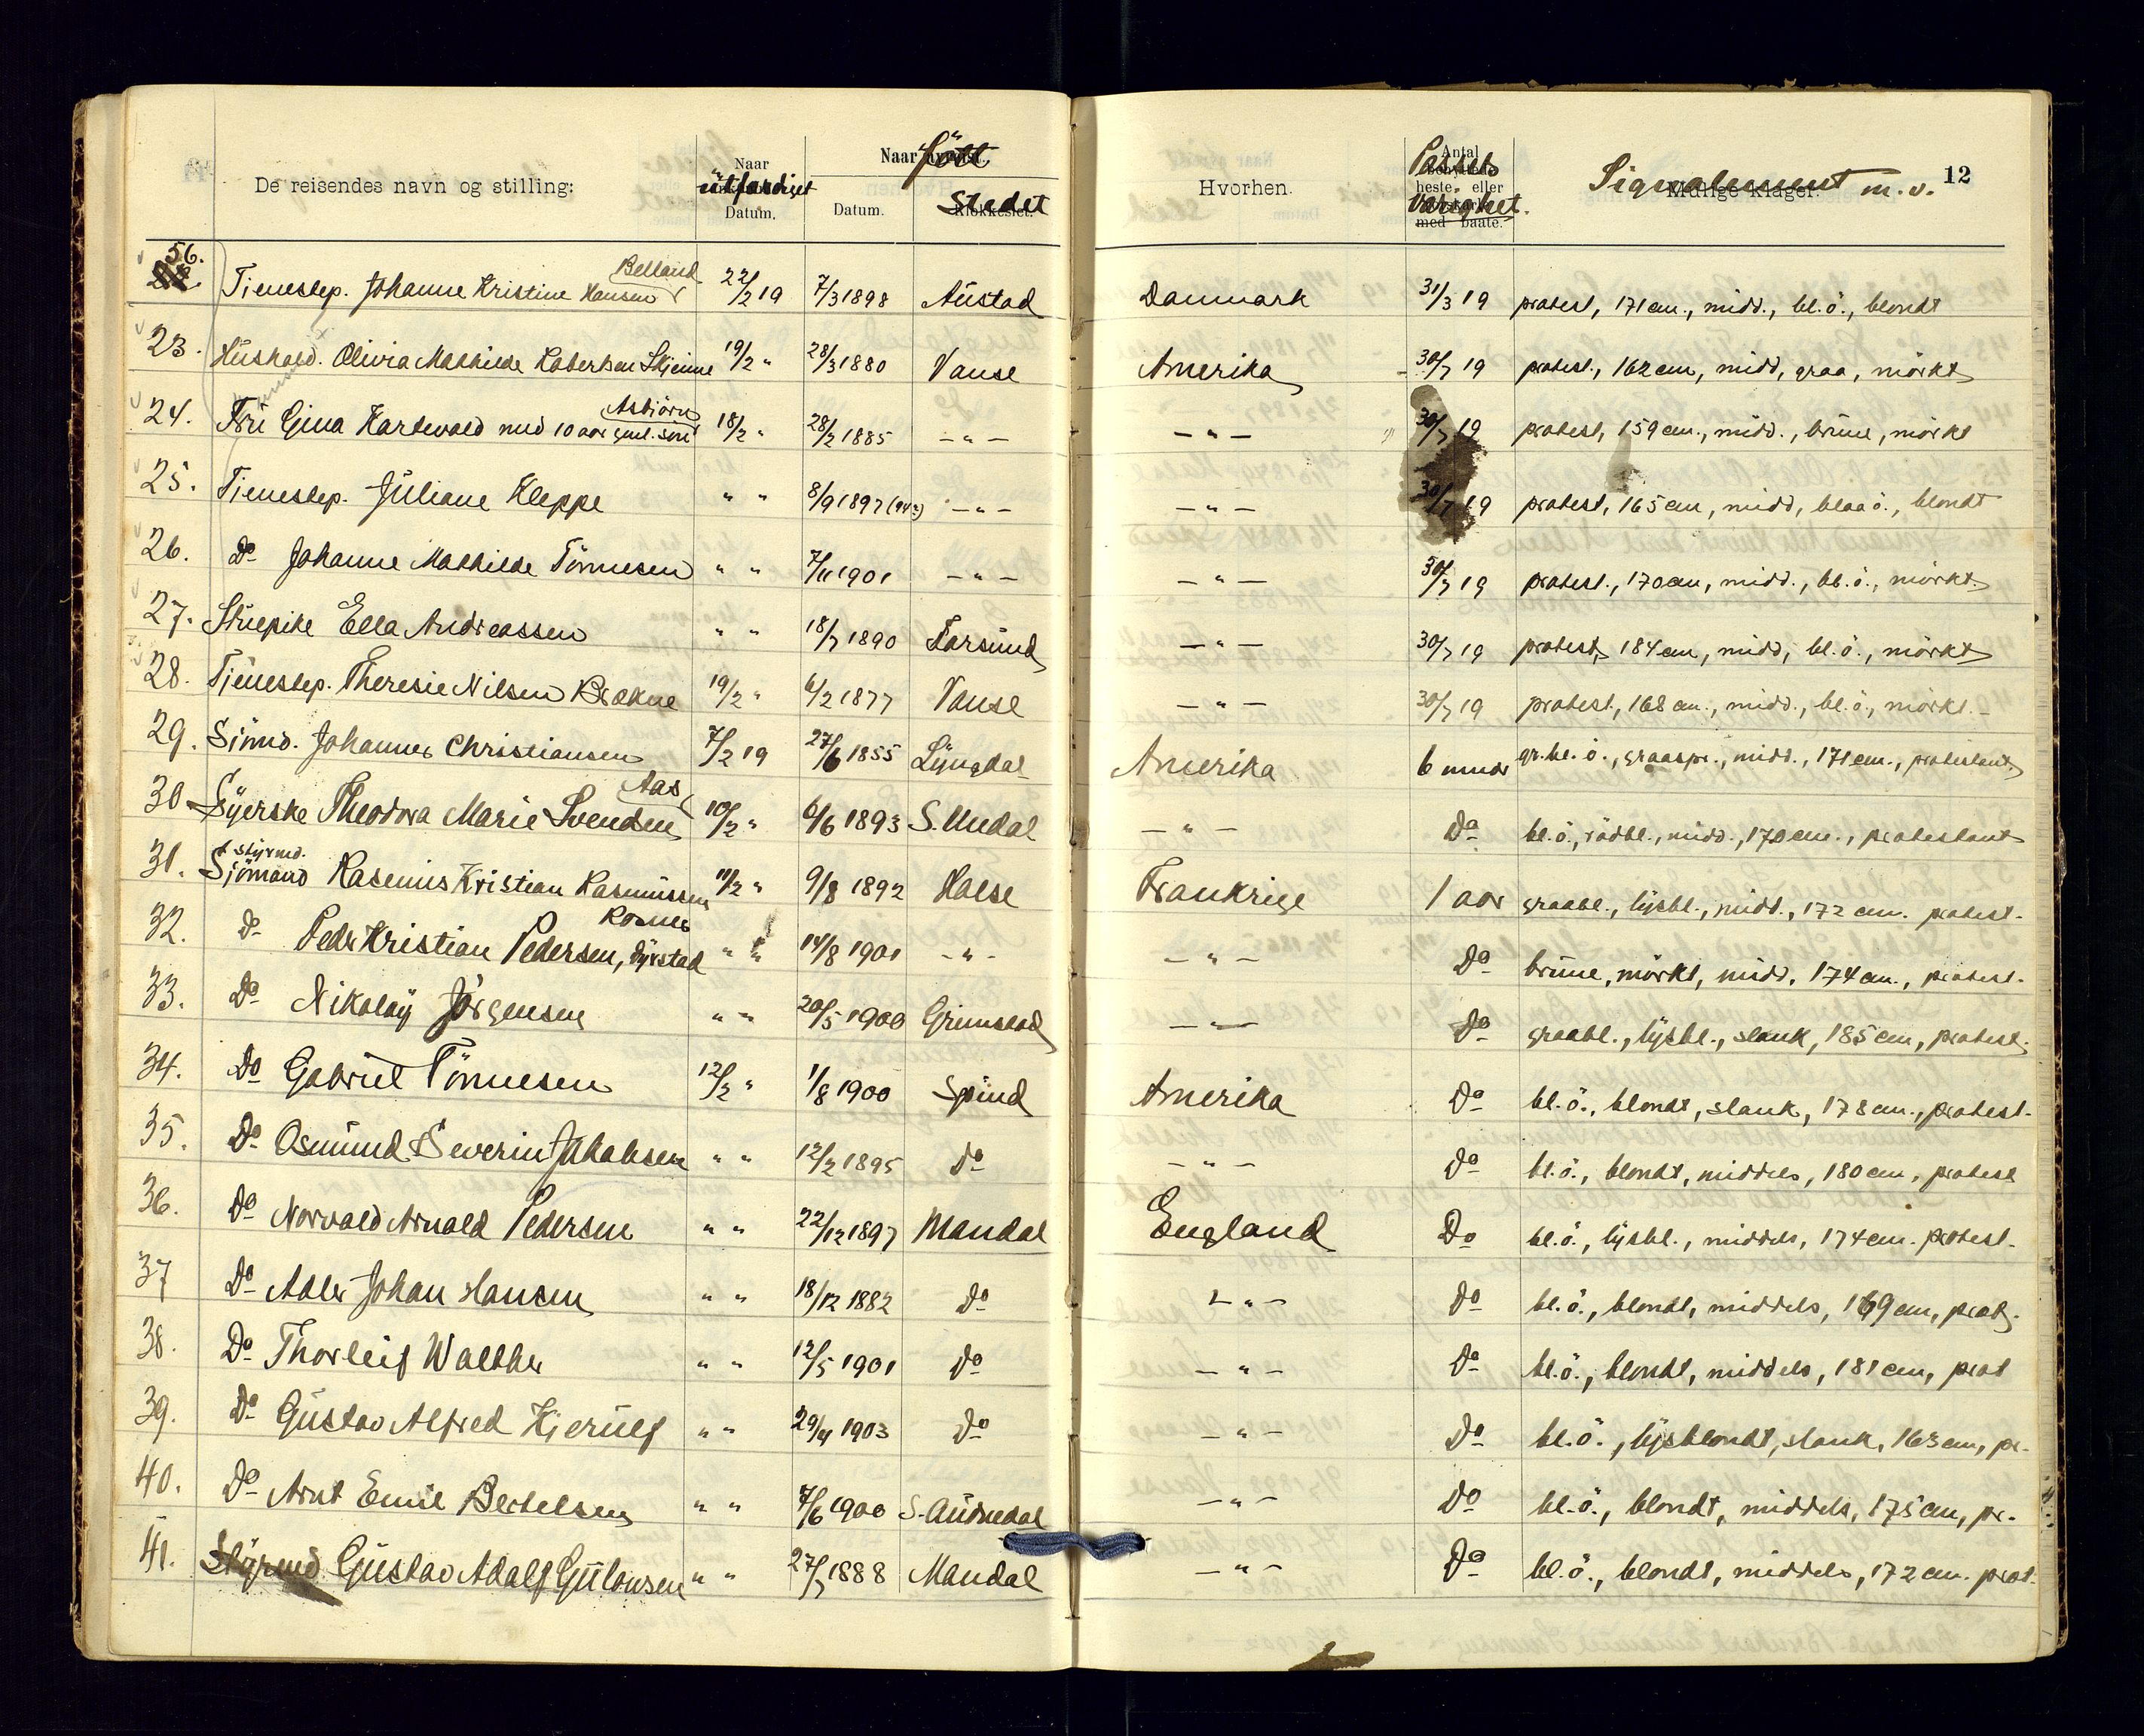 De reisendes navn og stilling: Naar utfærdiget Datum. Naar født Datum. Stedet Hvorhen. Passets varighet. Signalement m. v. 12
56. Tjenestep. Johanne Kristine Hansen Belland 22/2 19 7/3 1898 Austad Danmark 31/3 19 protest, 171 cm., midd., bl. ö., blondt
23. Hushold. Olivia Mathilde Robertsen Skjeime 19/2 " 28/3 1880 Vanse Amerika 30/7 19 protest., 162 cm, midd, graa, mörkt
24. Fru Gina Hartwald med 10 aar gml. sön Asbjörn 18/2 " 28/2 1885 — " — — " — 30/7 19 protest, 159 cm., midd., brune, mörkt
25. Tjenestep. Juliane Kleppe " " 8/9 1897 — " — — " — 30/7 19 protest, 165 cm, midd, blaa ö., blondt
26. Do Johanne Mathilde Tönnesen " " 7/11 1901 — " — — " — 30/7 19 protest., 170 cm, midd., bl. ö., mörkt
27. Stuepike Ella Andreassen " " 18/7 1890 Farsund — " — 30/7 19 protest, 184 cm, midd, bl. ö., mörkt
28. Tjenestep. Theresie Nilsen Brekne 19/2 " 6/2 1877 Vanse — " — 30/7 19 protest, 168 cm., midd., bl. ö., mörkt
29. Sjömd. Johannes Christiansen 7/2 19 27/6 1855 Lyngdal Amerika 6 mndr gr. bl. ö., graaspr., midd., 171 cm., protestant
30 Syerske Theodora Marie Svendsen Aas 10/2 " 6/6 1893 S. Undal — " — Do bl. ö., rödbl., midd., 170 cm., protestant
31. Sjömand styrmd. Rasmus Kristian Rasmussen 11/2 " 9/8 1892 Halse Frankrige 1 aar graabl., lysbl., midd., 172 cm. protest.
32. Do Peder Kristian Pedersen, Dyrstad " " 14/8 1901 - " - — " — Do brune, mörkt, midd, 174 cm., protest.
33. Do Nikolay Jörgensen " " 20/5 1900 Grimstad — " — Do graabl., lysbl., slank, 185 cm, protest.
34. Do Gabriel Tönnesen 12/2 " 1/8 1900 Spind Amerika Do bl. ö., blondt, slank, 178 cm., protest.
35. Do Osmund Severin Jakobsen " " 12/2 1895 Do - " — Do bl. ö., blondt, middels, 180 cm, protest
36. Do Norvald Arnold Pedersen " " 22/12 1897 Mandal England Do bl. ö., lysbl., middels, 174 cm. protest.
37 Do Adler Johan Hansen " " 18/12 1882 Do — " — Do bl. ö., blondt, middels, 169 cm, prot.
38. Do Thorleif Walther " " 12/5 1901 Do — " — Do bl. ö., blondt, middels, 181 cm, prot
39. Do Gustav Alfred Hjerulf " " 29/4 1903 Do — " — Do bl. ö., lysblondt, slank, 163 cm, pr.
40. Do Arnt Emil Bertelsen " " 7/6 1900 S. Audnedal — " — Do bl. ö., blondt, middels, 175 cm, pr.
41. Styrmd Gustav Adolf Gulowsen " " 27/7 1888 Mandal — " — Do bl. ö., blondt, middels, 172 cm. prot.